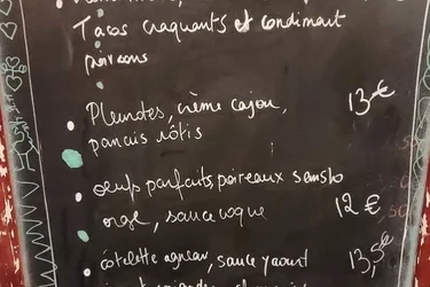 Tacos craquants et condiment
poivrons
Pleurotes, crème cajou, 13 €
panais rôtis
oeufs parfaits, poireaux
orge, sauce 12 €
côtelette agneau, sauce yaourt 13,5€